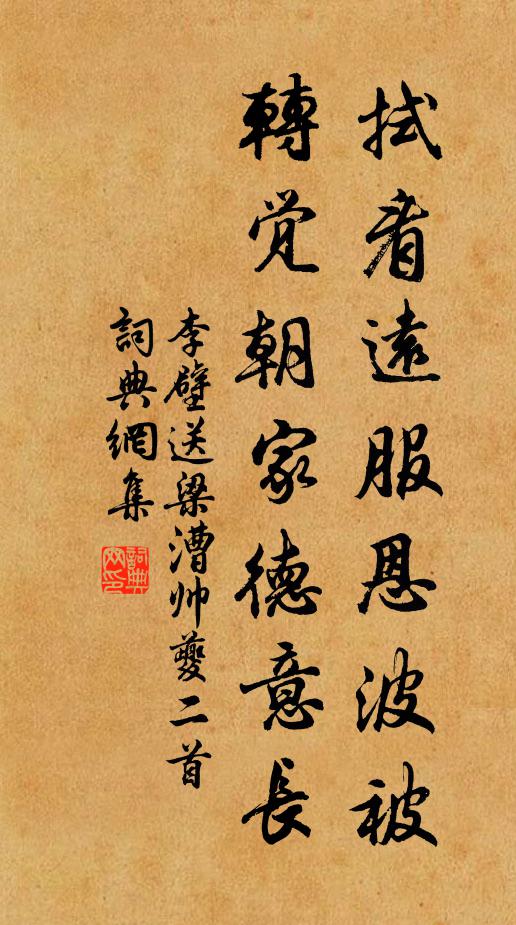 拭看遠服恩波被
轉覺朝家德意長
李壁送梁漕帅夔二首
詞典網集
詞典網印